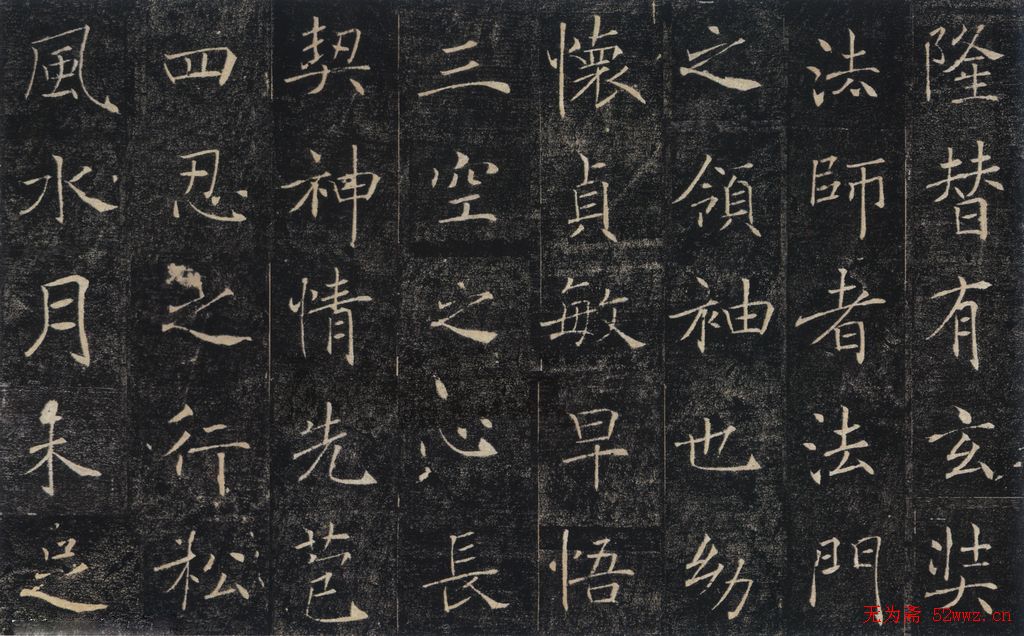 隆替有玄奘
法師者法門
之領袖也幼
懷貞敏早悟
三空之心長
契神情先苞
四忍之行松
風水月未足
无为斋 52wwz.cn